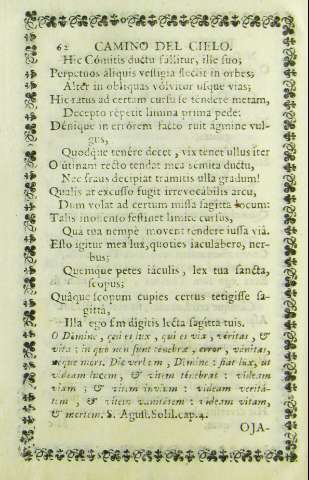 62 CAMINO DEL CIELO.
Hic Cómitis ductu fallitur, ille suo;
Perpetuos aliquis vestigia flectit in orbes;
Alter in obliquas volvitur usque vias;
Hic ratus ad certam cursu se tendere metam,
Decepto repetit limina prima pede:
Dénique in errórem facto ruit agmine vul-
gus,
Quodque tenére decet, vix tenet ullus iter
O útinam recto tendat mea semita ductu,
Nec fraus decipiat tramitis ulla gradum!
Qualis at excusso fugit irrevocábilis arcu,
Dum volat ad certum missa sagitta locum:
Talis inoento festinet limite cursus,
Qua tua nempè movent tendere iussa viâ.
Esto igitur mea lux, quoties iaculabero, ner-
bus;
Quemque petes iáculis, lex tua sancta,
scopus;
Quâque scopum cupies certus tetigisse sa-
gitta,
Illa ego sim digitis lecta sagitta tuis.
O Dómine, qui es lux, qui es via, véritas, &
vita: in quo non sunt tenebræ, error, vánitas,
neque mors. Dic verbum, Dómine: fiat lux, ut
vídeam lucem, & vitem ténebras: vídeam
viam; & vitem ínviam: vídeam veritá-
tem, & vitem vanitátem: vídeam vitam,
& mortem. S. August. Solil. cap. 4.
OJA-